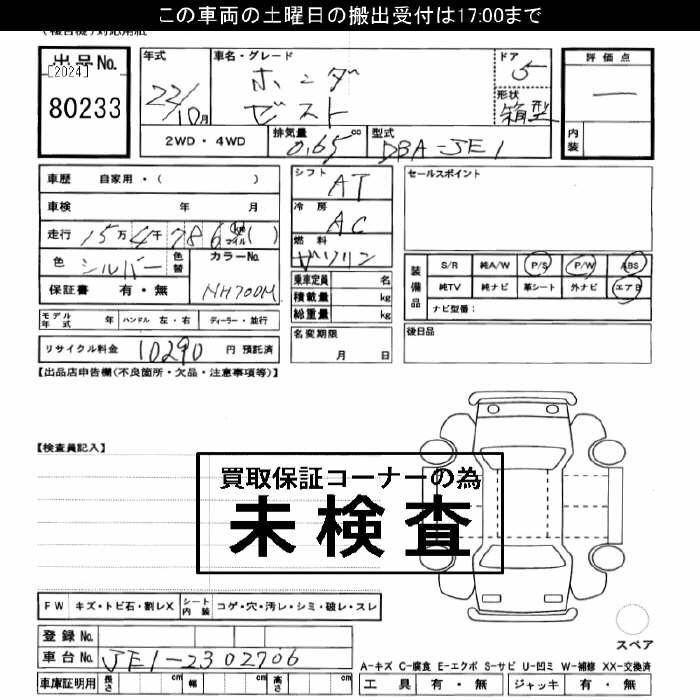 この車両の土曜日の搬出受付は17:00まで
出品No.
[2024]
80233
年式
22/10月
車名・グレード
ホンダ
ゼスト
ドア
5
形状
箱型
評価点
—
内装
2WD・4WD
排気量
0.65 cc
型式
DBA-JE1
車歴 自家用・( )
車検 年 月
走行 15万4千786 km マイル ( )
色 シルバー 色替
カラーNo.
NH700M
保証書 有・無
シフト
AT
冷房
AC
燃料
ガソリン
乗車定員 名
積載量 kg
総重量 kg
セールスポイント
装備品
S/R 純A/W P/S P/W ABS
純TV 純ナビ 革シート 外ナビ エアB
ナビ型番:
モデル年式 年 ハンドル 左・右 ディーラー・並行
名変期限
月 日
後日品
リサイクル料金 10290 円 預託済
【出品店申告欄(不良箇所・欠品・注意事項等)】
【検査員記入】
買取保証コーナーの為
未検査
FW キズ・トビ石・割レX シート内装 コゲ・穴・汚レ・シミ・破レ・スレ
登録No.
車台No. JE1-2302706
車庫証明用 長さ cm 幅 cm 高さ cm
スペア
A-キズ C-腐食 E-エクボ S-サビ U-凹ミ W-補修 XX-交換済
工具 有・無 ジャッキ 有・無